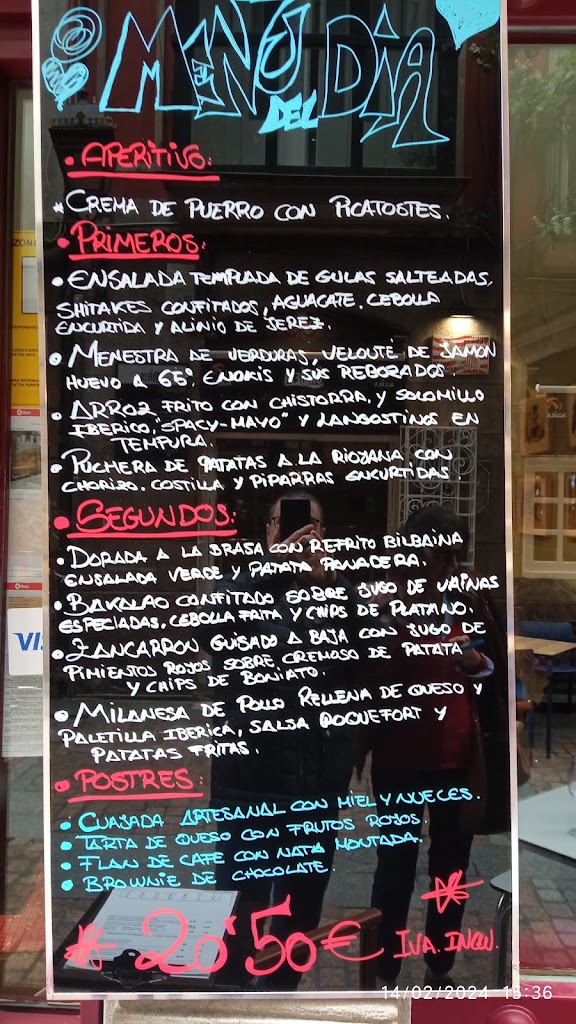 MENU DEL DIA
• APERITIVO:
* CREMA DE PUERRO CON PICATOSTES.
• PRIMEROS:
• ENSALADA TEMPLADA DE GULAS SALTEADAS,
SHITAKES CONFITADOS, AGUACATE, CEBOLLA
ENCURTIDA Y ALINIO DE JEREZ.
• MENESTRA DE VERDURAS, VELOUTÉ DE JAMON
HUEVO A 65º, ENOKIS Y SUS REBOZADOS.
• ARROZ FRITO CON CHISTORRA, Y SOLOMILLO
IBERICO, "SPACY-MAYO" Y LANGOSTINOS EN
TEMPURA.
• PUCHERA DE PATATAS A LA RIOJANA CON
CHORIZO, COSTILLA Y PIPARRAS ENCURTIDAS.
• SEGUNDOS:
• DORADA A LA BRASA CON REFRITO BILBAINA
ENSALADA VERDE Y PATATA PANADERA.
• BAKALAO CONFITADO SOBRE JUGO DE VAINAS
ESPECIADAS, CEBOLLA FRITA Y CHIPS DE PLATANO.
• ZANCARRON GUISADO A BAJA CON JUGO DE
PIMIENTOS ROJOS SOBRE CREMOSO DE PATATA
Y CHIPS DE BONIATO.
• MILANESA DE POLLO RELLENA DE QUESO Y
PALETILLA IBERICA, SALSA ROQUEFORT Y
PATATAS FRITAS.
• POSTRES:
• CUAJADA ARTESANAL CON MIEL Y NUECES.
• TARTA DE QUESO CON FRUTOS ROJOS.
• FLAN DE CAFE CON NATA MONTADA.
• BROWNIE DE CHOCOLATE.
20'50€ IVA. INCLU.
ZONA
VIS
14/02/2024 15:36